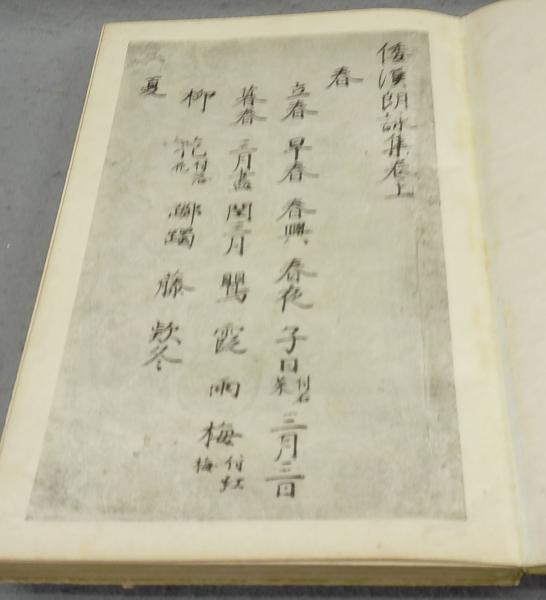 倭漢朗詠集巻上
春
立春 早春 春興 春夜 子日付若菜 三月三日
暮春 三月盡 閏三月 鸎 霞 雨 梅付紅梅
柳 花付落花 躑躅 藤 欵冬
夏